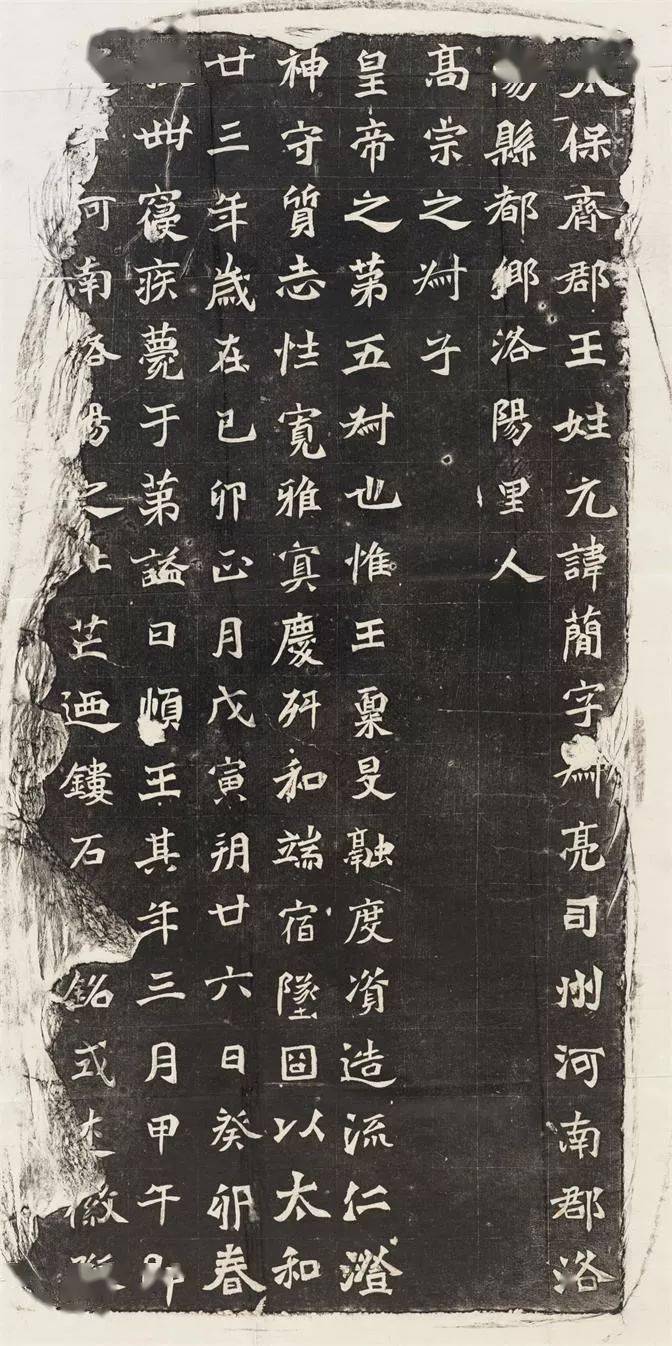 保齊郡王姓元諱簡字叔亮司州河南郡洛
陽縣都鄉洛陽里人
高宗之叔子
皇帝之第五叔也惟王稟旻融度資造流仁澄
神守質志性寬雅寘慶舛和端宿墜以太和
廿三年歲在己卯正月戊寅朔廿六日癸卯春
卌寢疾薨于第謚曰順王其年三月甲午卽
河南洛陽之北芒迺鏤石銘式述徽